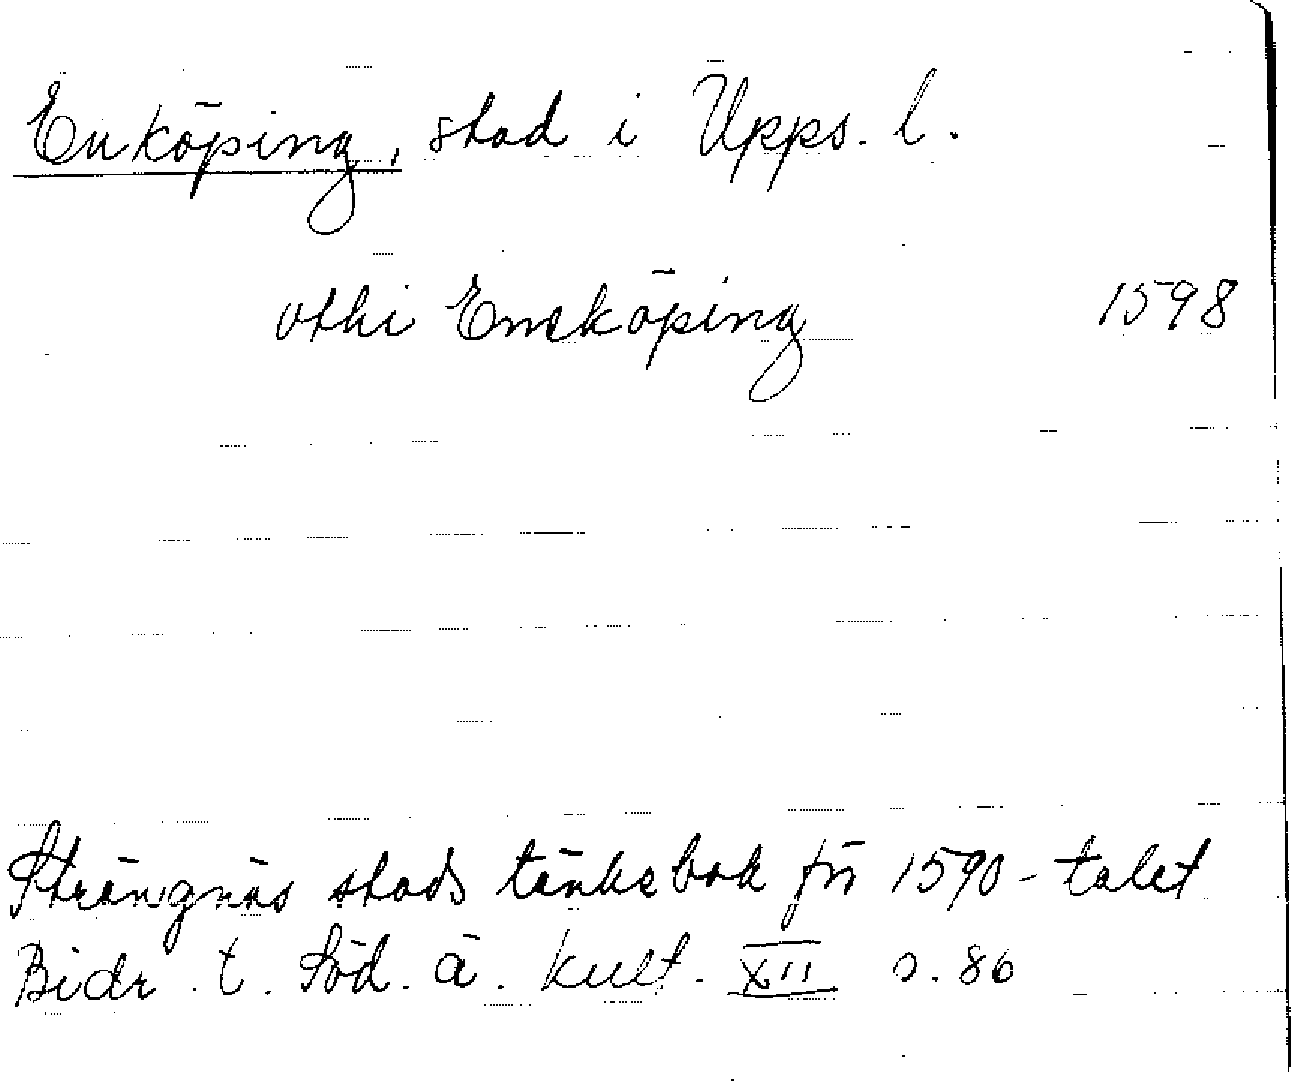 Enköping, stad i Upps. l.
vthi Eneköping 1598
Strängnäs stads tänkebok för 1590-talet
Bidr. t. Söd. ä. kult. XII s. 86